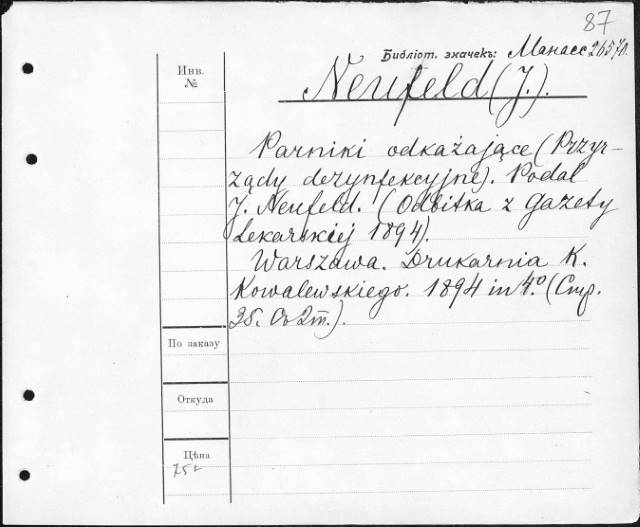 87
Библіот. значекъ: Манасс 2657д.
Инв.
№
Neufeld (J.).
Parniki odkażające (Przyr-
ządy dezynfekcyjne). Podał
J. Neufeld. (Odbitka z Gazety
Lekarskiej 1894).
Warszawa. Drukarnia K.
Kowalewskiego. 1894 in 4.º (Стр.
25. Съ 2т.).
По заказу
Откуда
Цѣна
75к